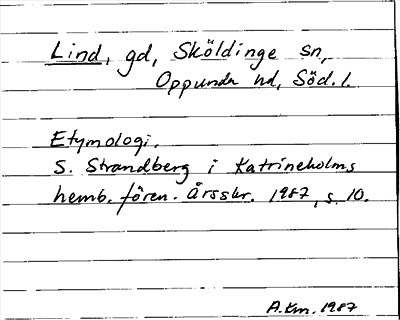 Lind, gd, Sköldinge sn,
Oppunda hd, Söd. l.
Etymologi.
S. Strandberg i Katrineholms
hemb. fören. årsskr. 1987, s. 10.
A.Km. 1987